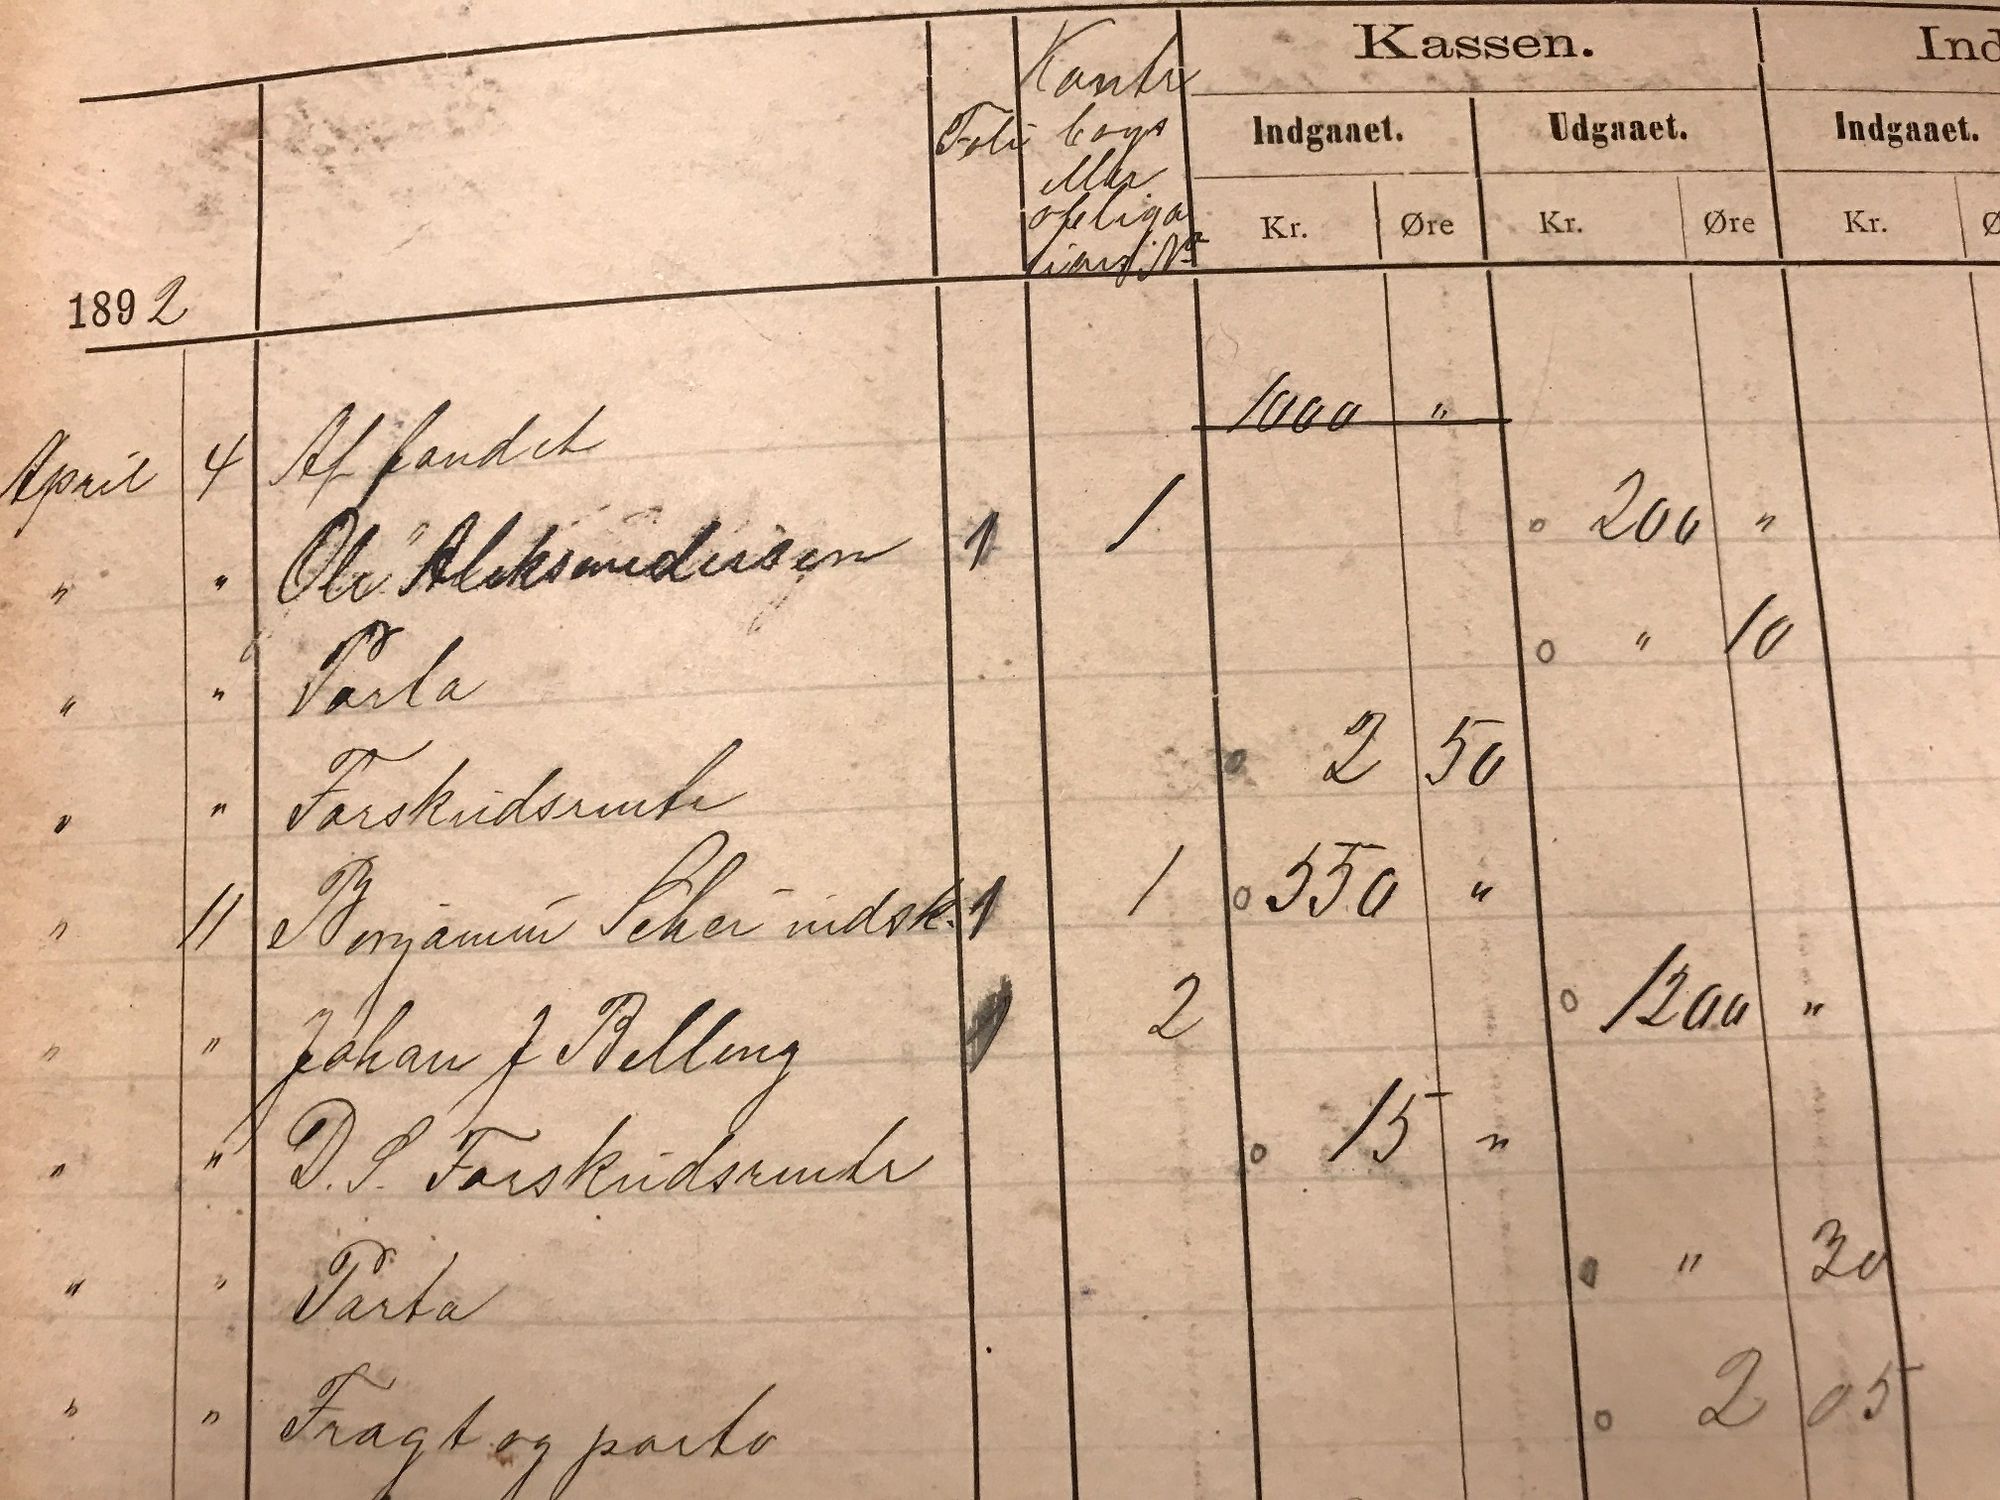 Kassen. Ind
Folio Kontr
bogs
eller
obliga
tions Nr
Indgaaet. Udgaaet. Indgaaet.
Kr. Øre Kr. Øre Kr. Ø
1892
April 4 Af fondet 1000 "
" " Ole Aleksandersen 1 1 200 "
" " Porto " 10
" " Forskudsrente 2 50
" 11 Benjamin indsk. 1 1 550 "
" " Johan J Belling 1 2 1200 "
" " D. S. Forskudsrente 15 "
" " Porto " 30
" " Fragt og porto 2 05